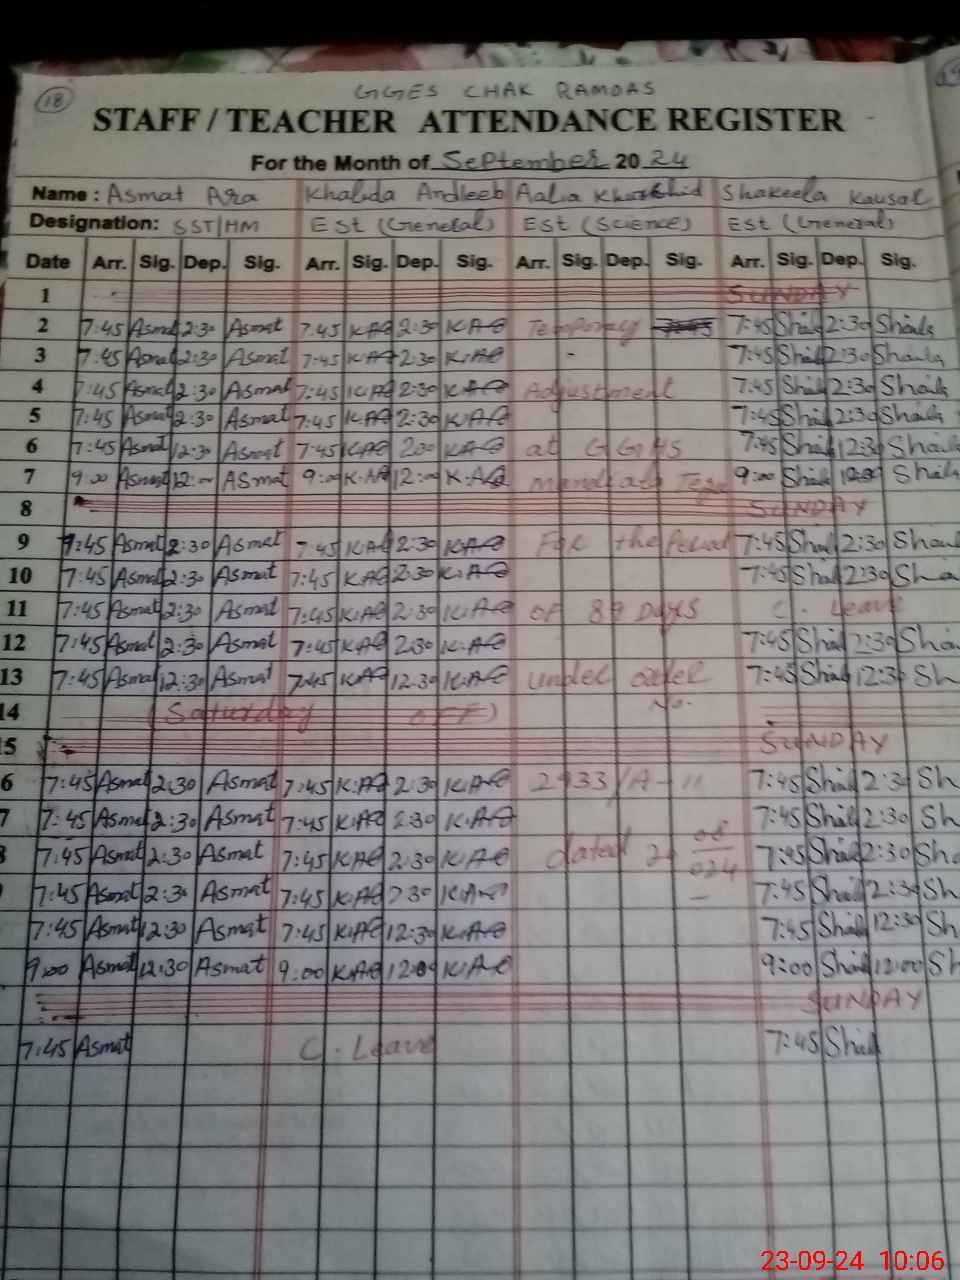 18
GGES CHAK RAMDAS
STAFF / TEACHER ATTENDANCE REGISTER
For the Month of September 20 24
Name : Asmat Ara Khalida Andleeb Aalia Khurshid Shakeela Kausar
Designation: SST/HM Est (General) Est (Science) Est (General)
Date Arr. Sig. Dep. Sig. Arr. Sig. Dep. Sig. Arr. Sig. Dep. Sig. Arr. Sig. Dep. Sig.
1 SUNDAY
2 7:45 Asmat 2:30 Asmat 7:45 K.A 2:30 K.A Temporary 7:45 Shak 2:30 Shaila
3 7:45 Asmat 2:30 Asmat 7:45 K.A 2:30 K.A - 7:45 Shak 2:30 Shaila
4 7:45 Asmat 2:30 Asmat 7:45 K.A 2:30 K.A Adjustment 7:45 Shak 2:30 Shaila
5 7:45 Asmat 2:30 Asmat 7:45 K.A 2:30 K.A 7:45 Shak 2:30 Shaila
6 7:45 Asmat 12:30 Asmat 7:45 K.A K.A at GGHS 7:45 Shak 12:3 Shaila
7 9:00 Asmat 12:00 ASmat 9:00 K.A 12:00 K.A 9:00 Shak 12:00 Shaila
8 SUNDAY
9 7:45 Asmat 2:30 Asmat 7:45 K.A 2:30 K.A For the Period 7:45 Shak 2:30 Sha
10 7:45 Asmat 2:30 Asmat 7:45 K.A 2:30 K.A 7:45 Shak 2:30 Sha
11 7:45 Asmat 2:30 Asmat 7:45 K.A 2:30 K.A OF 89 Days C. Leave
12 7:45 Asmat 2:30 Asmat 7:45 K.A 2:30 K.A 7:45 Shak 2:30 Sha
13 7:45 Asmat 12:30 Asmat 7:45 K.A 12:30 K.A under order 7:45 Shak 12:3 Sh
14 (Saturday OFF) No.
5 SUNDAY
6 7:45 Asmat 2:30 Asmat 7:45 K.A 2:30 K.A 2933/A-11 7:45 Shak 2:30 Sh
7 7:45 Asmat 2:30 Asmat 7:45 K.A 2:30 K.A 7:45 Shak 2:30 Sh
7:45 Asmat 2:30 Asmat 7:45 K.A 2:30 K.A dated 2 08 024 7:45 Shak 2:30 Sh
7:45 Asmat 2:30 Asmat 7:45 K.A 2:30 K.A 7:45 Shak 2:30 Sh
7:45 Asmat 12:30 Asmat 7:45 K.A 12:30 K.A 7:45 Shak 12:30 Sh
9:00 Asmat 12:30 Asmat 9:00 K.A 12:00 K.A 9:00 Shak 12:00 Sh
SUNDAY
7:45 Asmat C. Leave 7:45 Shak
23-09-24 10:06